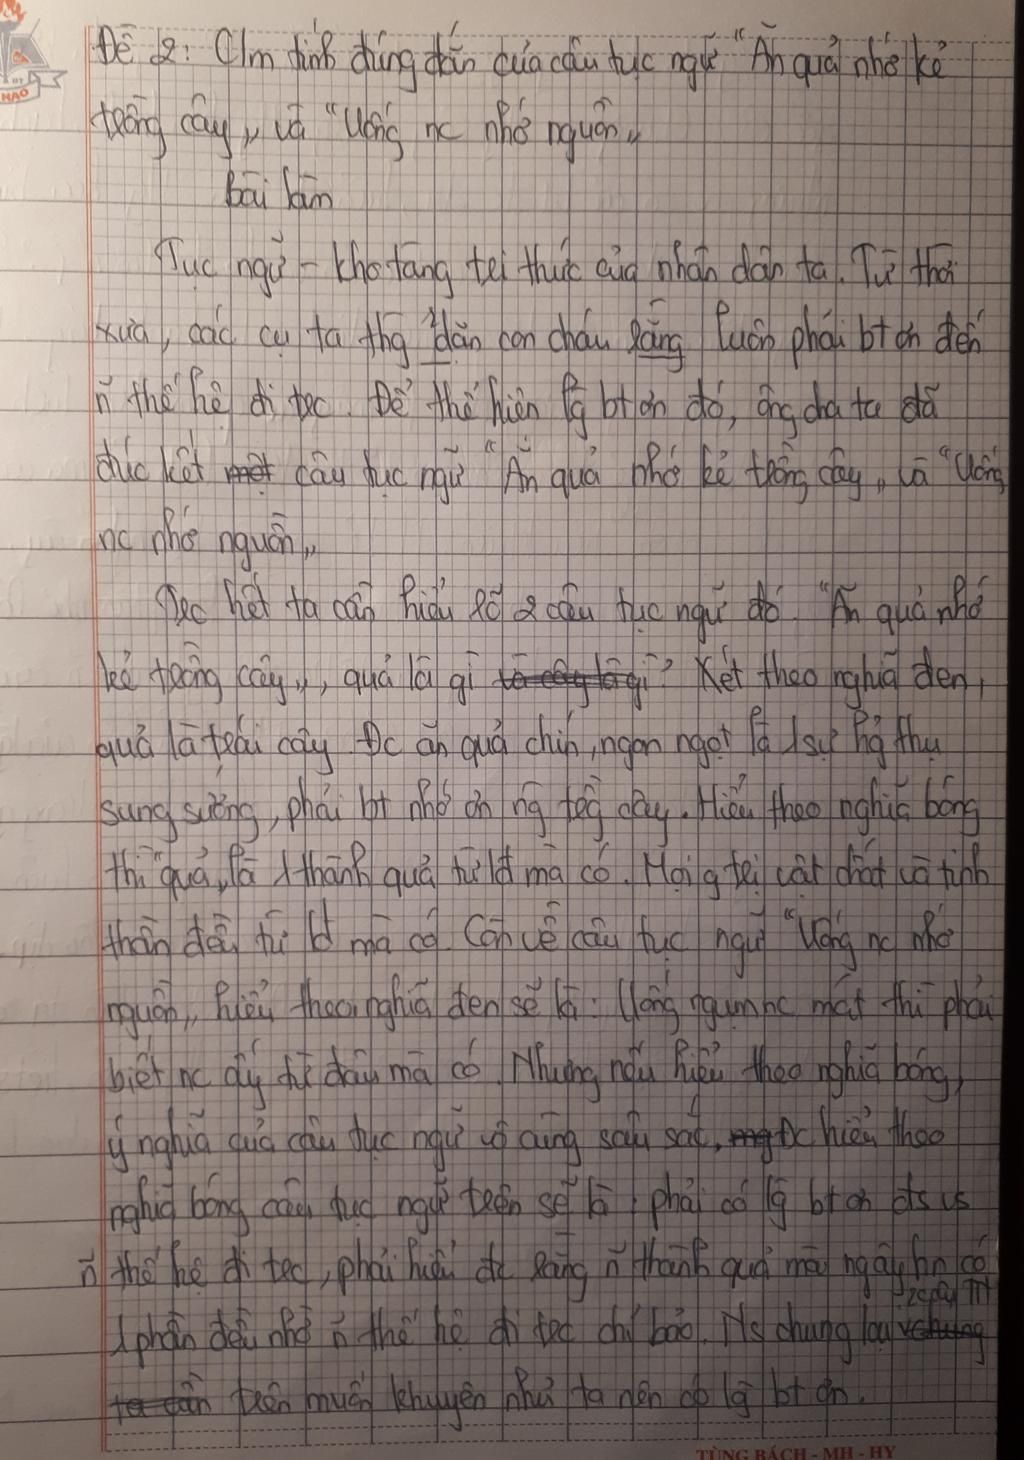 Đề 2: Clm tính đúng đắn của câu tục ngữ "Ăn quả nhớ kẻ
trồng cây„ và "Uống nc nhớ nguồn„
bài làm
Tục ngữ – kho tàng tri thức của nhân dân ta. Từ thời
xưa, các cụ ta thg dăn con cháu rằng luôn phải bt ơn đến
ñ thế hệ đi trc. Để thể hiện lg bt ơn đó, ông cha ta đã
đúc kết câu tục ngữ "Ăn quả nhớ kẻ trồng cây„ và "Uống
nc nhớ nguồn„
Trc hết ta cần hiểu rõ 2 câu tục ngữ đó. "Ăn quả nhớ
kẻ trồng cây„, quả là gì? Xét theo nghĩa đen,
quả là trái cây. Đc ăn quả chín, ngon ngọt là 1 sự hg thụ
sung sướng, phải bt nhớ ơn ng trồg cây. Hiểu theo nghĩa bóng
thì "quả„ là 1 thành quả từ lđ mà có. Mọi g trị vật chất và tinh
thần đều từ lđ mà có. Còn về câu tục ngữ "Uống nc nhớ
nguồn„ hiểu theo nghĩa đen sẽ là: Uống ngụm nc mát thì phải
biết nc ấy từ đâu mà có. Nhưng nếu hiểu theo nghĩa bóng,
ý nghĩa của câu tục ngữ vô cùng sâu sắc, Đc hiểu theo
nghĩa bóng câu tục ngữ trên sẽ là: phải có lg bt ơn đvs
ñ thế hệ đi trc, phải hiểu đc rằng ñ thành quả mà ngày hn có
1 phần đều nhờ ñ thế hệ đi trc chỉ bảo. Ns chung lại 2 câu TN
trên muốn khuyên nhủ ta nên có lg bt ơn.
TÙNG BÁCH - MH - HY